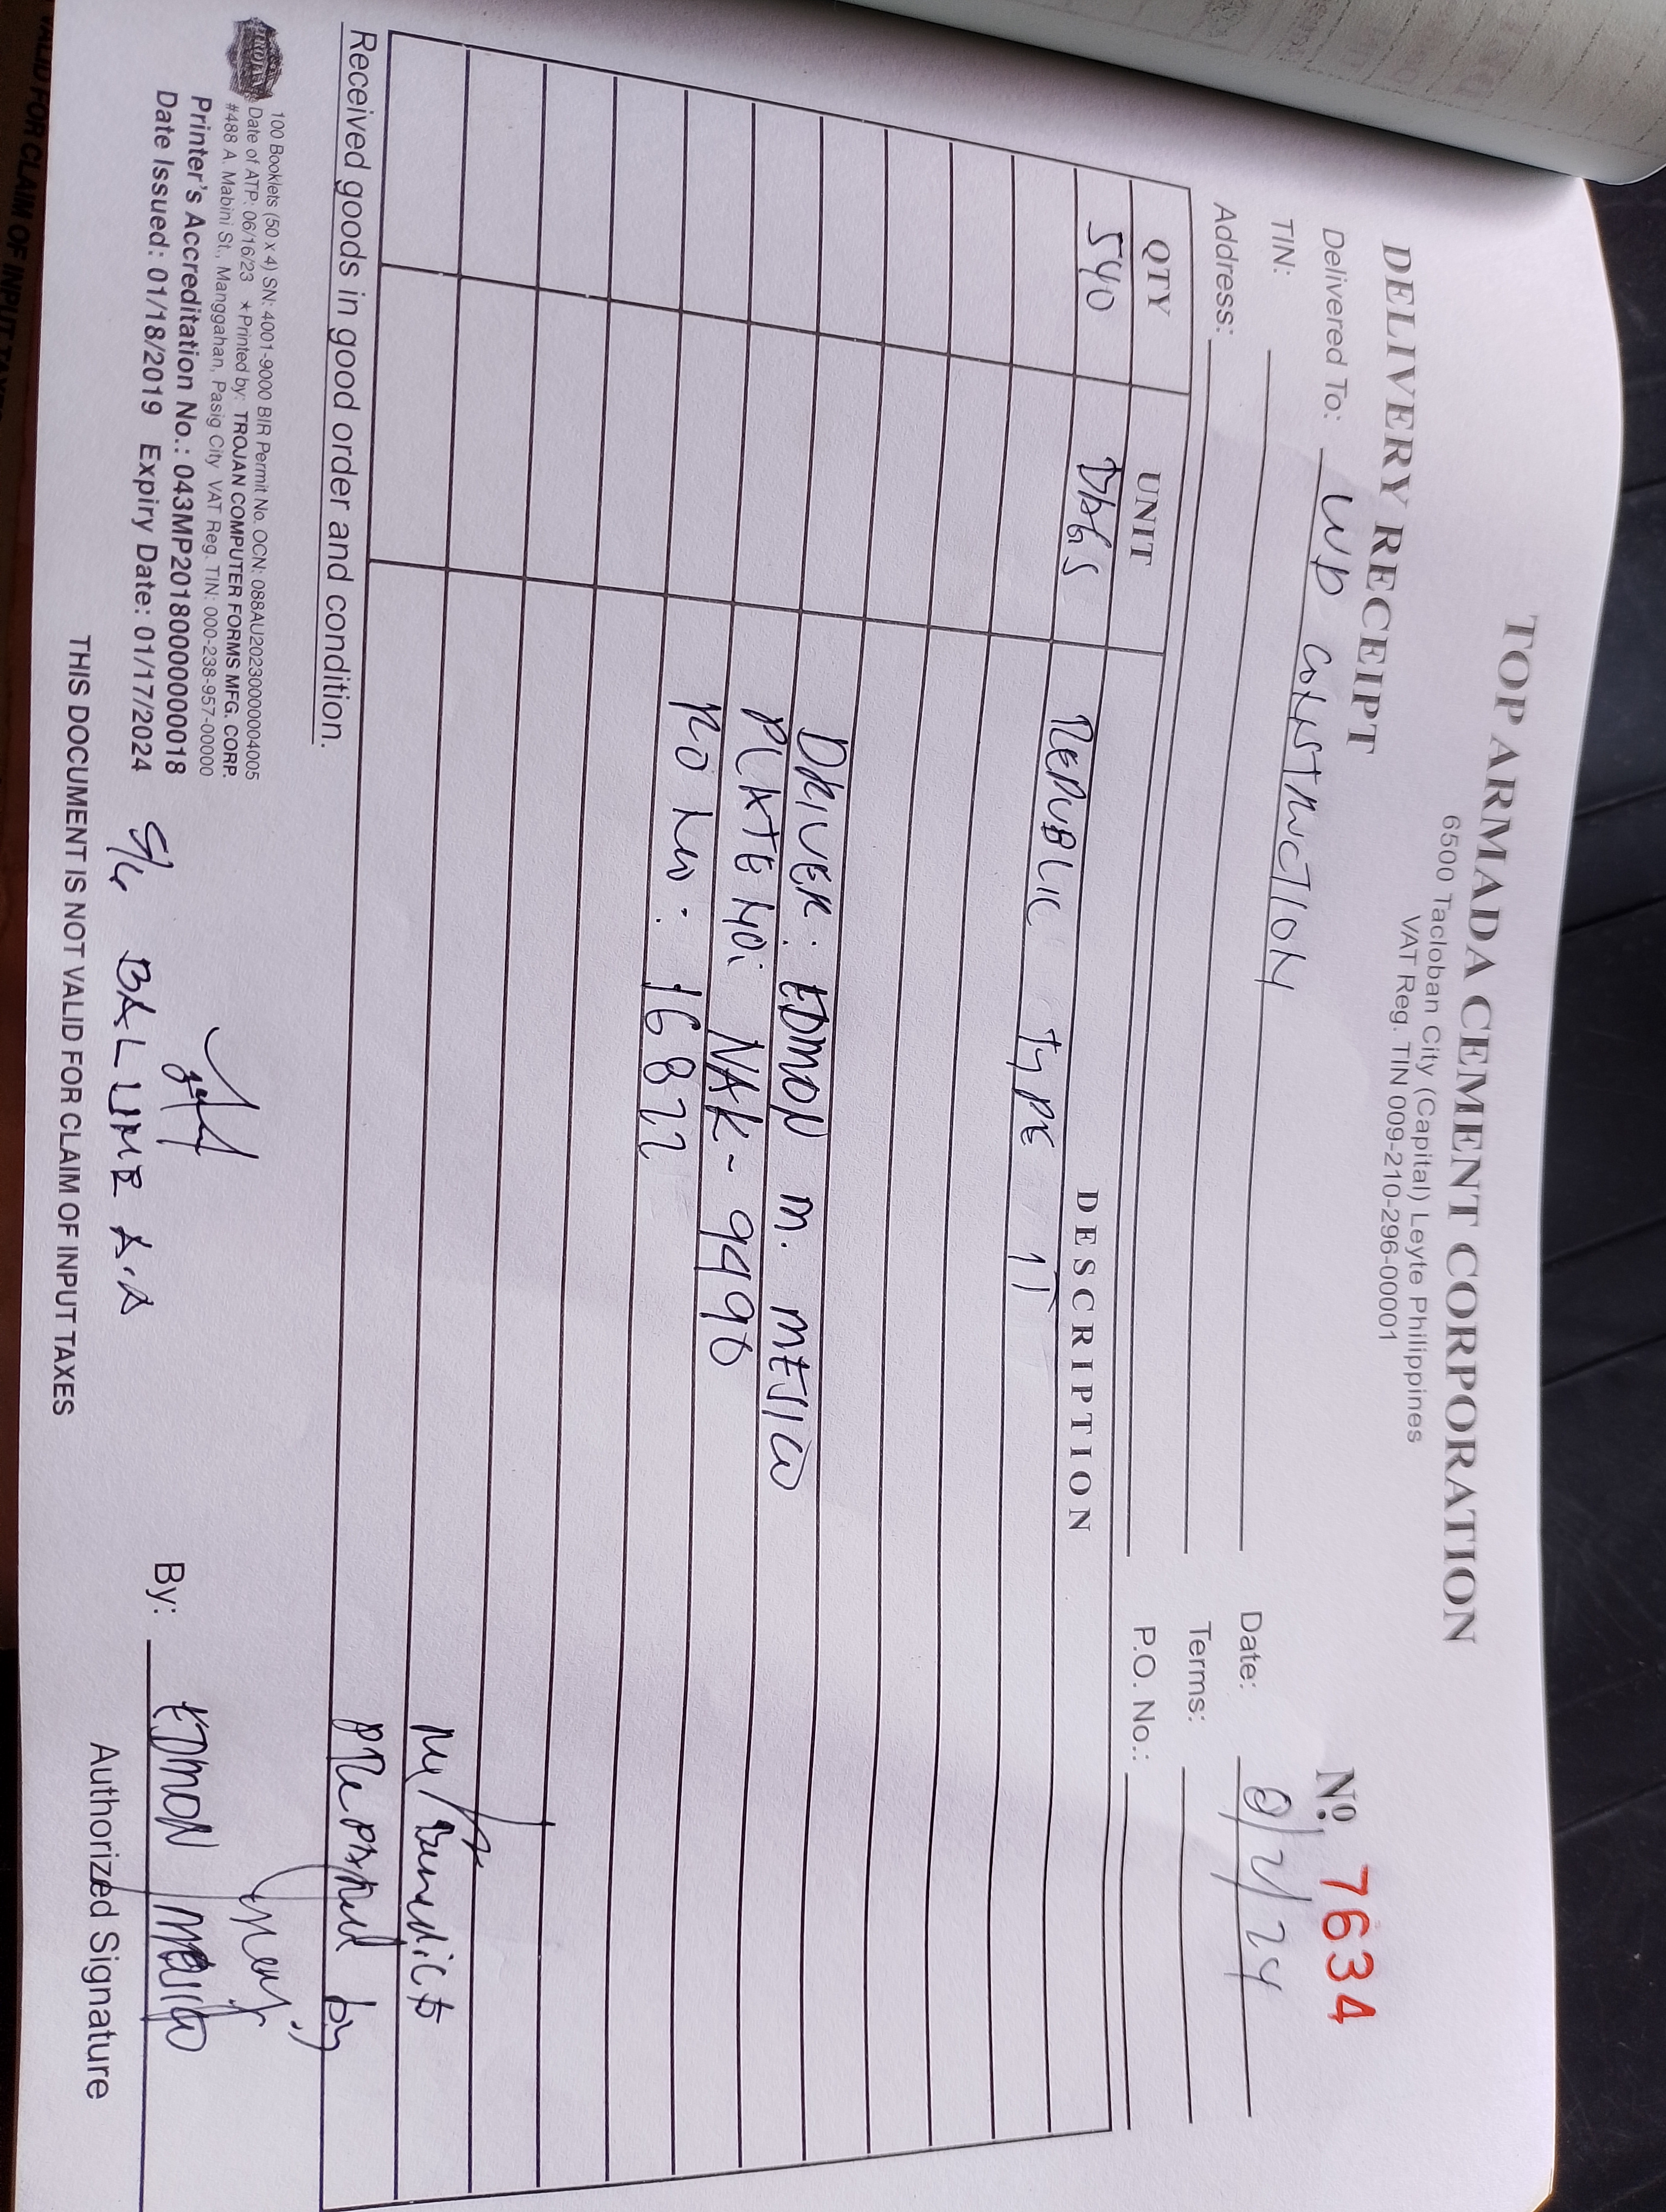 TOP ARMADA CEMENT CORPORATION
6500 Tacloban City (Capital) Leyte Philippines
VAT Reg. TIN 009-210-296-00001
DELIVERY RECEIPT
Nº. 7634
Delivered To: WD CONSTRUCTION
Date: 8/21/24
TIN:
Terms:
Address:
P.O. No.:
QTY UNIT DESCRIPTION
540 BAGS REPUBLIC TYPE 1T
DRIVER: EDMON M. MESICO
PLATE NO: NAK-9490
RO NO: 16822
M/Benedicto
Prepared by
Received goods in good order and condition.
TROJAN
100 Booklets (50 x 4) SN: 4001-9000 BIR Permit No. OCN: 088AU20230000004005
Date of ATP: 06/16/23 ★Printed by: TROJAN COMPUTER FORMS MFG. CORP.
#488 A. Mabini St., Manggahan, Pasig City VAT Reg. TIN: 000-238-957-00000
Printer's Accreditation No.: 043MP20180000000018
Date Issued: 01/18/2019 Expiry Date: 01/17/2024
S/G BALUMR A.A
By: EDMON MESICO
Authorized Signature
THIS DOCUMENT IS NOT VALID FOR CLAIM OF INPUT TAXES